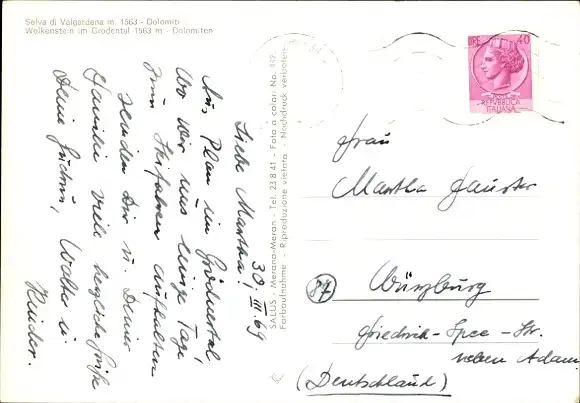 Selva di Valgardena m. 1563 - Dolomiti
Wolkenstein im Grödental 1563 m - Dolomiten
30. III. 69
Liebe Martha!
Aus Plan im Grödnertal,
wo wir uns einige Tage
zum Skifahren aufhalten
senden Dir u. Deiner
Familie viele herzliche Grüße
Deine Gudrun, Walter u.
Kinder.
SALUS - Merano-Meran - Tel. 23 8 41 - Foto a colori No. 442
Farbaufnahme - Riproduzione vietata - Nachdruck verboten
LIRE 40
REPVBBLICA
ITALIANA
Frau
Martha
87 Würzburg
Friedrich-Spee-Str.
neben Adam
(Deutschland)